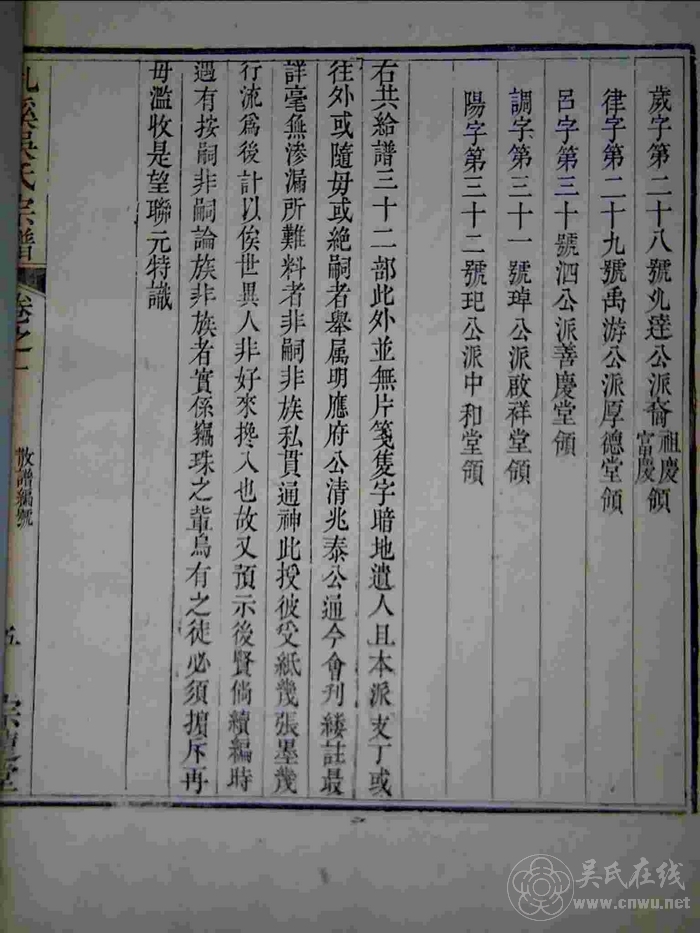 歲字第二十八號兆達公派裔祖慶富慶領
律字第二十九號禹游公派厚德堂領
呂字第三十號泗公派善慶堂領
調字第三十一號琸公派啟祥堂領
陽字第三十二號玘公派中和堂領
右共給譜三十二部此外並無片箋隻字暗地遺人且本派支丁或
往外或隨母或絕嗣者舉属明應府公清兆泰公通今會刊縷註最
詳毫無渗漏所難料者非嗣非族私貫通神此授彼受紙幾張墨幾
行流爲後計以俟世異人非好來搀入也故又預示後賢倘續編時
遇有按嗣非嗣論族非族者實係竊珠之輩烏有之徒必須擯斥再
毋濫收是望聯元特識
溪吳氏宗譜
卷之一
散譜編號
五
堂
吴氏在线
www.cnwu.net